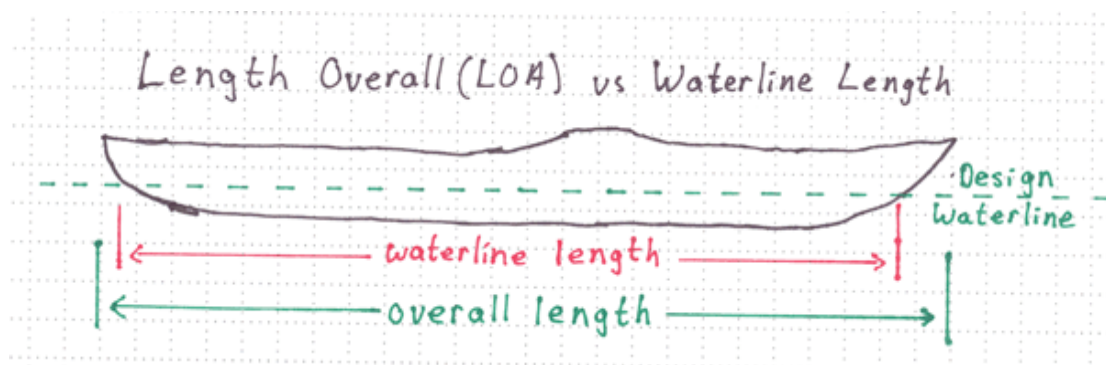 Length Overall (LOA) vs Waterline Length
Design
Waterline
waterline length
overall length